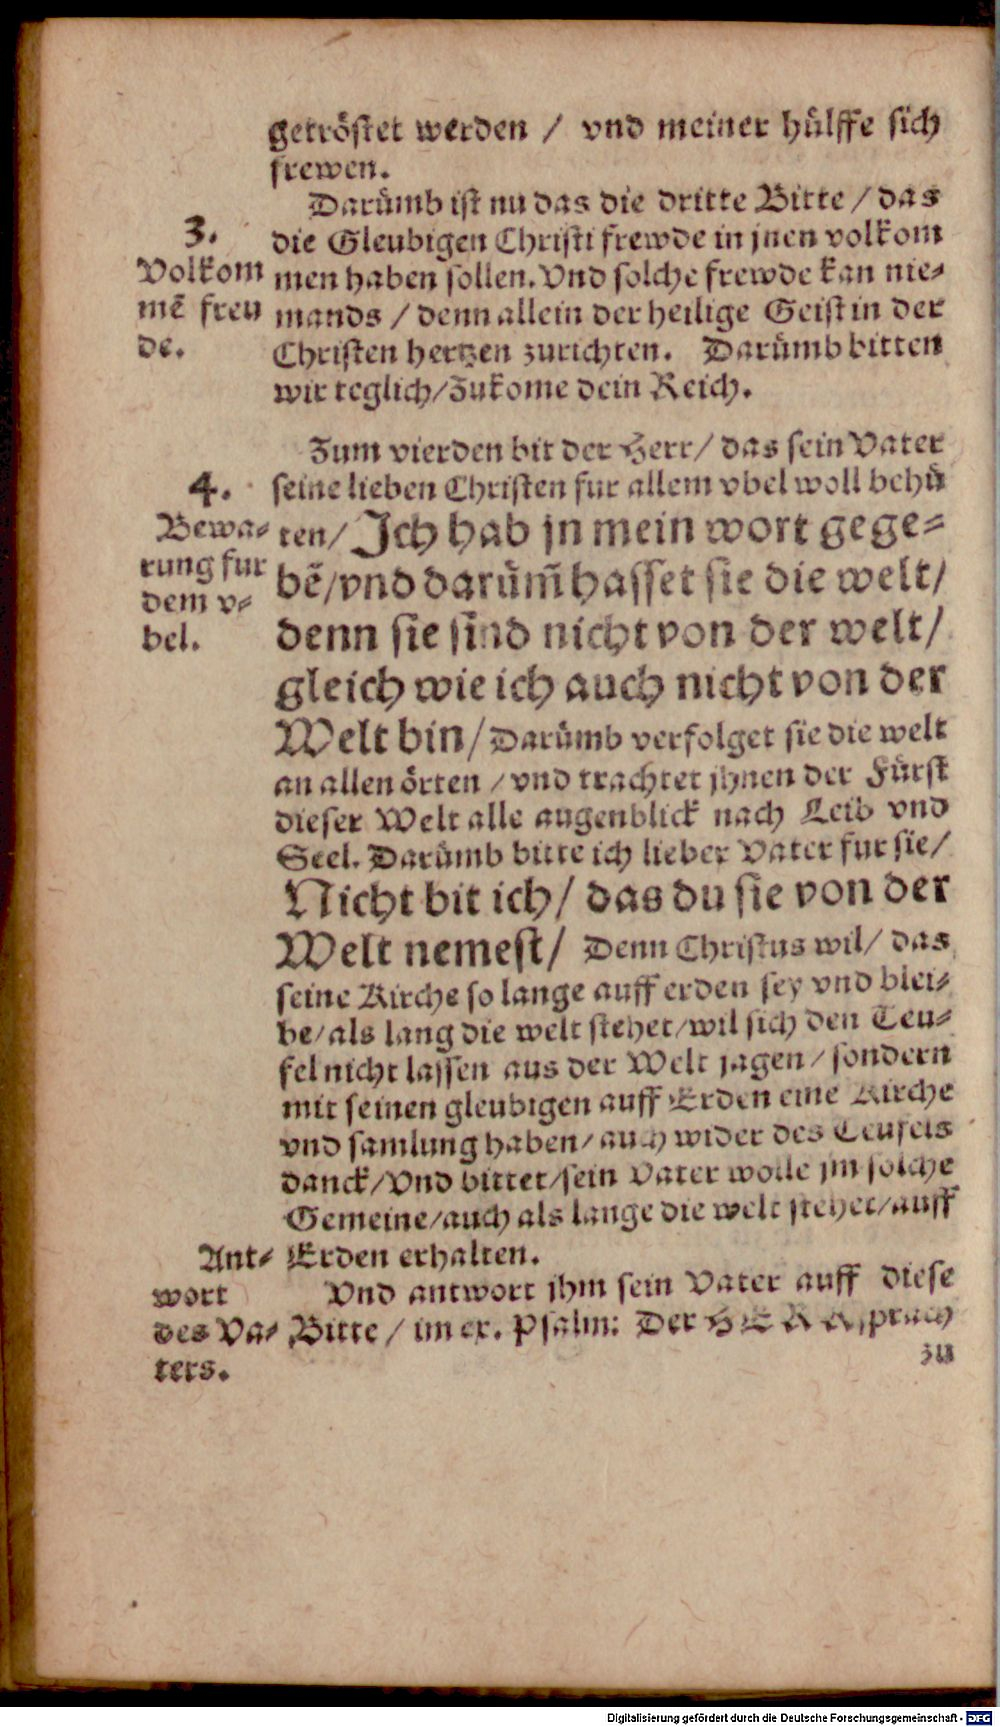 getröstet werden / vnd meiner hülffe sich
frewen.
Darümb ist nu das die dritte Bitte / das
die Gleubigen Christi frewde in jnen volkom
men haben sollen. Vnd solche frewde kan nie-
mands / denn allein der heilige Geist in der
Christen hertzen zurichten. Darümb bitten
wir teglich/Zukome dein Reich.
3.
Volkom
mē freu
de.
Zum vierden bit der Herr/ das sein Vater
seine lieben Christen fur allem vbel woll behü
ten/ Jch hab jn mein wort gege-
bē/vnd darüm̄ hasset sie die welt/
denn sie sind nicht von der welt/
gleich wie ich auch nicht von der
Welt bin/ Darümb verfolget sie die welt
an allen örten / vnd trachtet jhnen der Fürst
dieser Welt alle augenblick nach Leib vnd
Seel. Darümb bitte ich lieber Vater fur sie/
Nicht bit ich/ das du sie von der
Welt nemest/ Denn Christus wil/ das
seine Kirche so lange auff erden sey vnd blei-
be/als lang die welt stehet/wil sich den Teu-
fel nicht lassen aus der Welt jagen / sondern
mit seinen gleubigen auff Erden eine Kirche
vnd samlung haben/ auch wider des Teufels
danck/Vnd bittet/sein Vater wolle jm solche
Gemeine/auch als lange die welt stehet/auff
Erden erhalten.
4.
Bewa-
rung fur
dem v-
bel.
Vnd antwort jhm sein Vater auff diese
Bitte / im cx. Psalm: Der HERR sprach
zu
Ant-
wort
des Va-
ters.
Digitalisierung gefördert durch die Deutsche Forschungsgemeinschaft - DFG